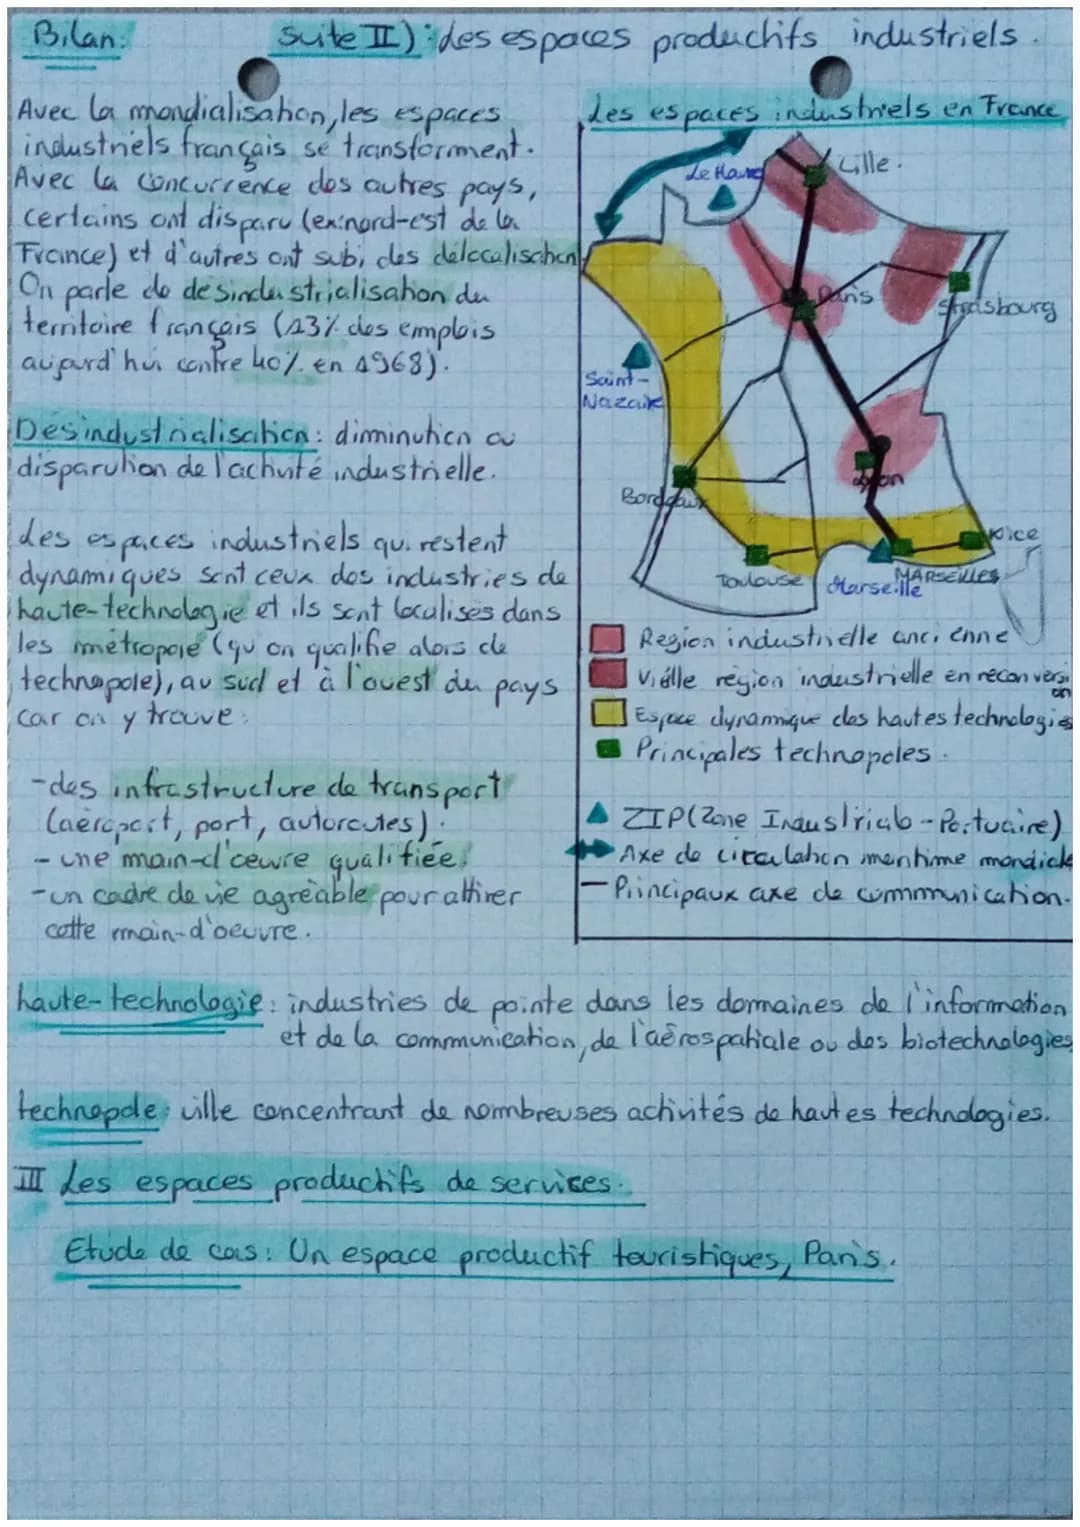 Bilan: suite II): des espaces productifs industriels.
Avec la mondialisation, les espaces
industriels français se transforment.
Avec la concurrence des autres pays,
certains ont disparu (ex: nord-est de la
France) et d'autres ont subi des délocalisation
On parle de désindustrialisation du
territoire français (13% des emplois
aujourd'hui contre 40% en 1968).
Désindustrialisation: dimminution ou
disparution de l'activité industrielle.
Les espaces industriels qui restent
dynamiques sont ceux des industries de
haute-technologie et ils sont localisés dans
les métropole (qu'on qualifie alors de
technopole), au sud et à l'ouest du pays
car on y trouve:
-des infrastructure de transport
(aéroport, port, autoroutes).
- une main-d'œuvre qualifiée.
-un cadre de vie agréable pour attirer
cette main-d'oeuvre.
Les espaces industriels en France
Lille.
Le Havre
Paris
Strasbourg
Saint-
Nazaire
Lyon
Bordeaux
Nice
Toulouse
Marseille
MARSEILLES
Region industrielle anciénne
Viélle région industrielle en reconversi
on
Espace dynamique des hautes technologies
Principales technopoles.
ZIP (Zone Industrialo-Portuaire)
Axe de circulation maritime mondiale
Principaux axe de commmunication.
haute-technologie: industries de pointe dans les domaines de l'information
et de la communication, de l'aérospatiale ou des biotechnologies
technopole: ville concentrant de nombreuses activités de hautes technologies.
III Les espaces productifs de services.
Etude de cas: Un espace productif touristiques, Paris.